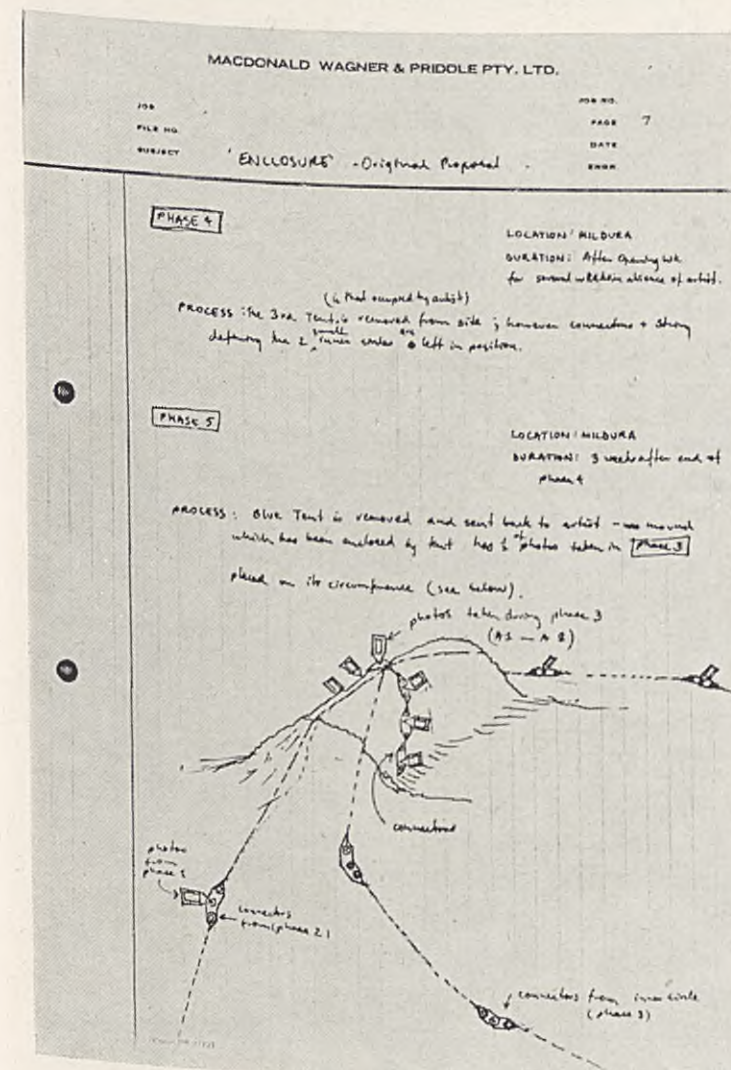 MACDONALD WAGNER & PRIDDLE PTY. LTD.
JOB
JOB NO.
FILE NO.
PAGE 7
SUBJECT 'ENCLOSURE' - Original Proposal
DATE
ENGR.
PHASE 4
LOCATION: MILDURA
DURATION: After Opening wk
for several weeks in absence of artist.
(is that occupied by artist)
PROCESS: The 3rd Tent, is removed from site; however connectors + string
defining the 2 small inner circles are left in position.
PHASE 5
LOCATION: MILDURA
DURATION: 3 weeks after end of
phase 4
PROCESS: Blue Tent is removed and sent back to artist - mound
which has been enclosed by tent has photos taken in Phase 3
placed on its circumference (see below).
photos taken during phase 3
(A1 — A8)
connections
photos
from
phase
connectors
from (phase 2)
connectors from inner circle
(phase 3)